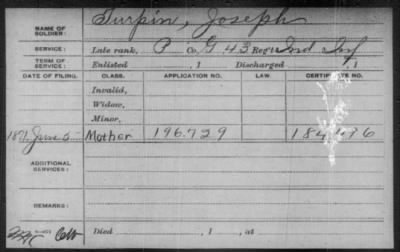 NAME OF SOLDIER: Turpin, Joseph
SERVICE: Late rank, P Co. G 43 Reg't Ind Inf
TERM OF SERVICE: Enlisted , 1 Discharged , 1
DATE OF FILING. CLASS. APPLICATION NO. LAW. CERTIFICATE NO.
Invalid,
Widow,
Minor,
1871 June 5 Mother 196.729 184,476
ADDITIONAL SERVICES:
REMARKS:
Died , 1 , at